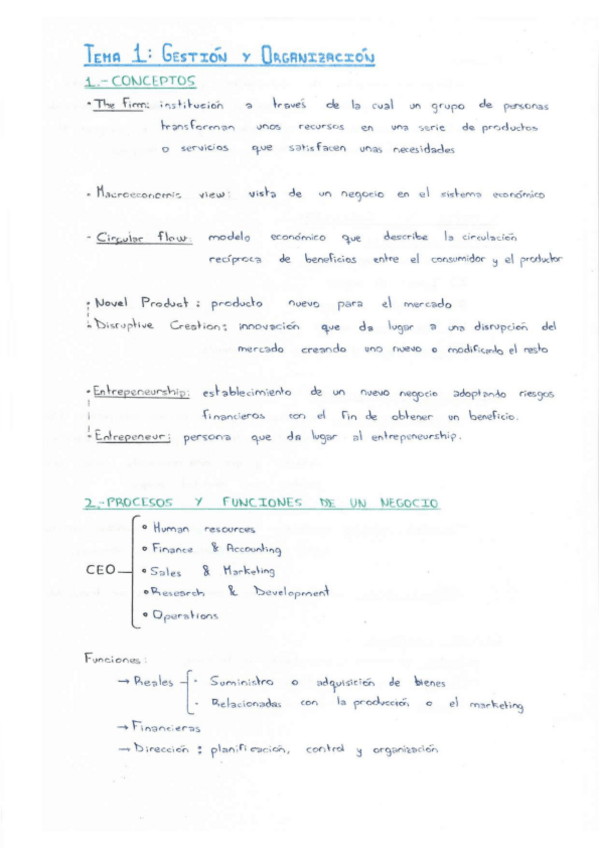 TEMA 1: GESTIÓN Y ORGANIZACIÓN
1.- CONCEPTOS
· The firm: institución a través de la cual un grupo de personas
transforman unos recursos en una serie de productos
o servicios que satisfacen unas necesidades
· Macroeconomic view: vista de un negocio en el sistema económico
- Circular flow: modelo económico que describe la circulación
recíproca de beneficios entre el consumidor y el productor
· Novel Product: producto nuevo para el mercado
· Disruptive Creation: innovación que da lugar a una disrupción del
mercado creando uno nuevo o modificando el resto
· Entrepeneurship: establecimiento de un nuevo negocio adoptando riesgos
financieros con el fin de obtener un beneficio.
· Entrepeneur: persona que da lugar al entrepeneurship.
2.- PROCESOS Y FUNCIONES DE UN NEGOCIO
• Human resources
• Finance & Accounting
CEO • Sales & Marketing
• Research & Development
• Operations
Funciones:
→ Reales - Suministro o adquisición de bienes
- Relacionadas con la producción o el marketing
→ Financieras
→ Dirección: planificación, control y organización